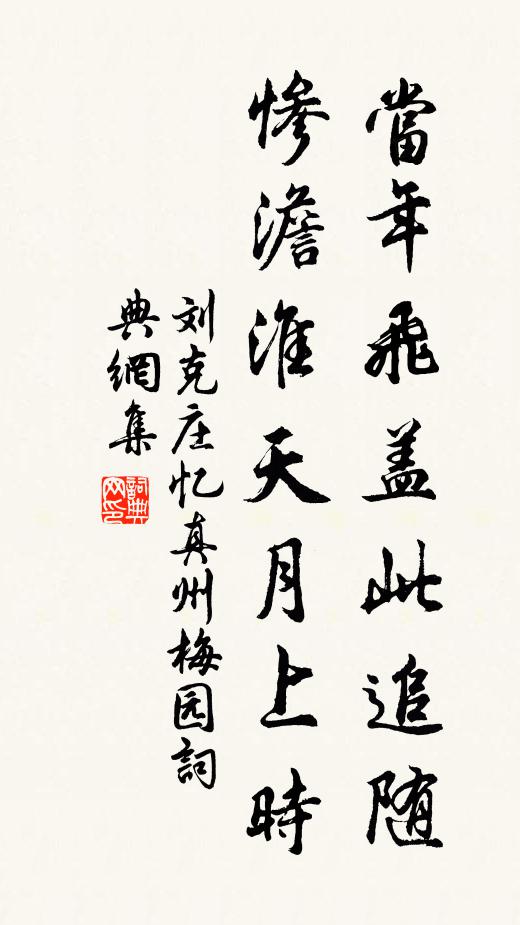 當年飛盖此追随
慘澹淮天月上時
刘克庄忆真州梅园詞
典網集
詞典网印